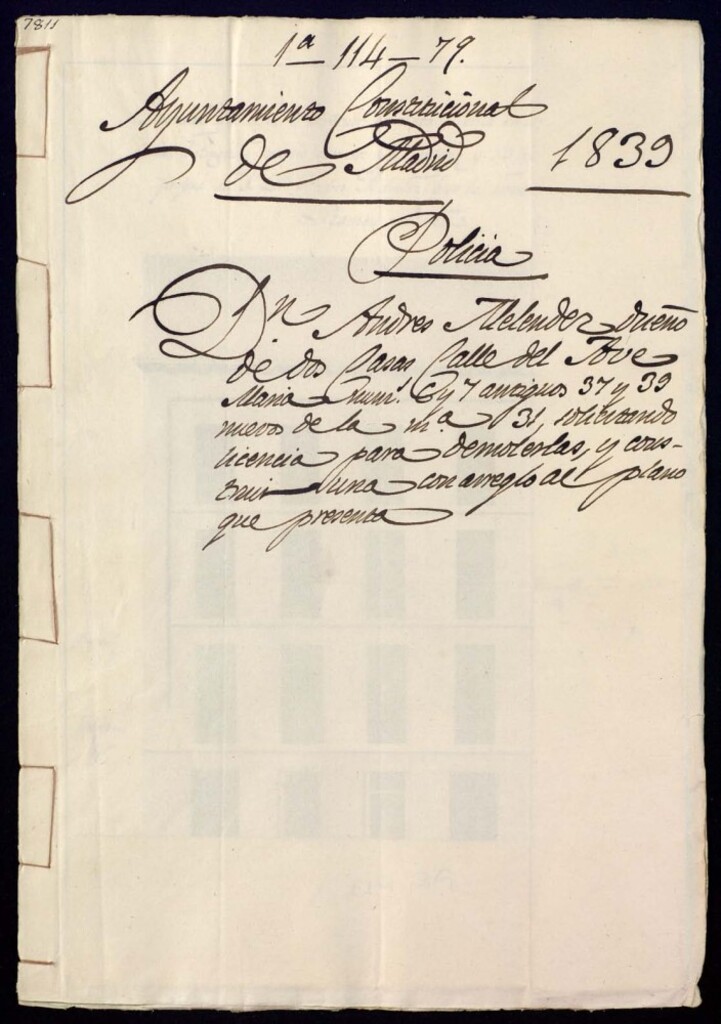 7811
1ª 114-79.
Ayuntamiento Constitucional
de Madrid 1839
Policia
Dn Andres Melendez, dueño
de dos Casas Calle del Ave
Maria num.s 6 y 7 antiguos 37 y 39
nuevos de la m.a 31, solicitando
licencia para demolerlas, y cons-
truir una con arreglo al plano
que presenta